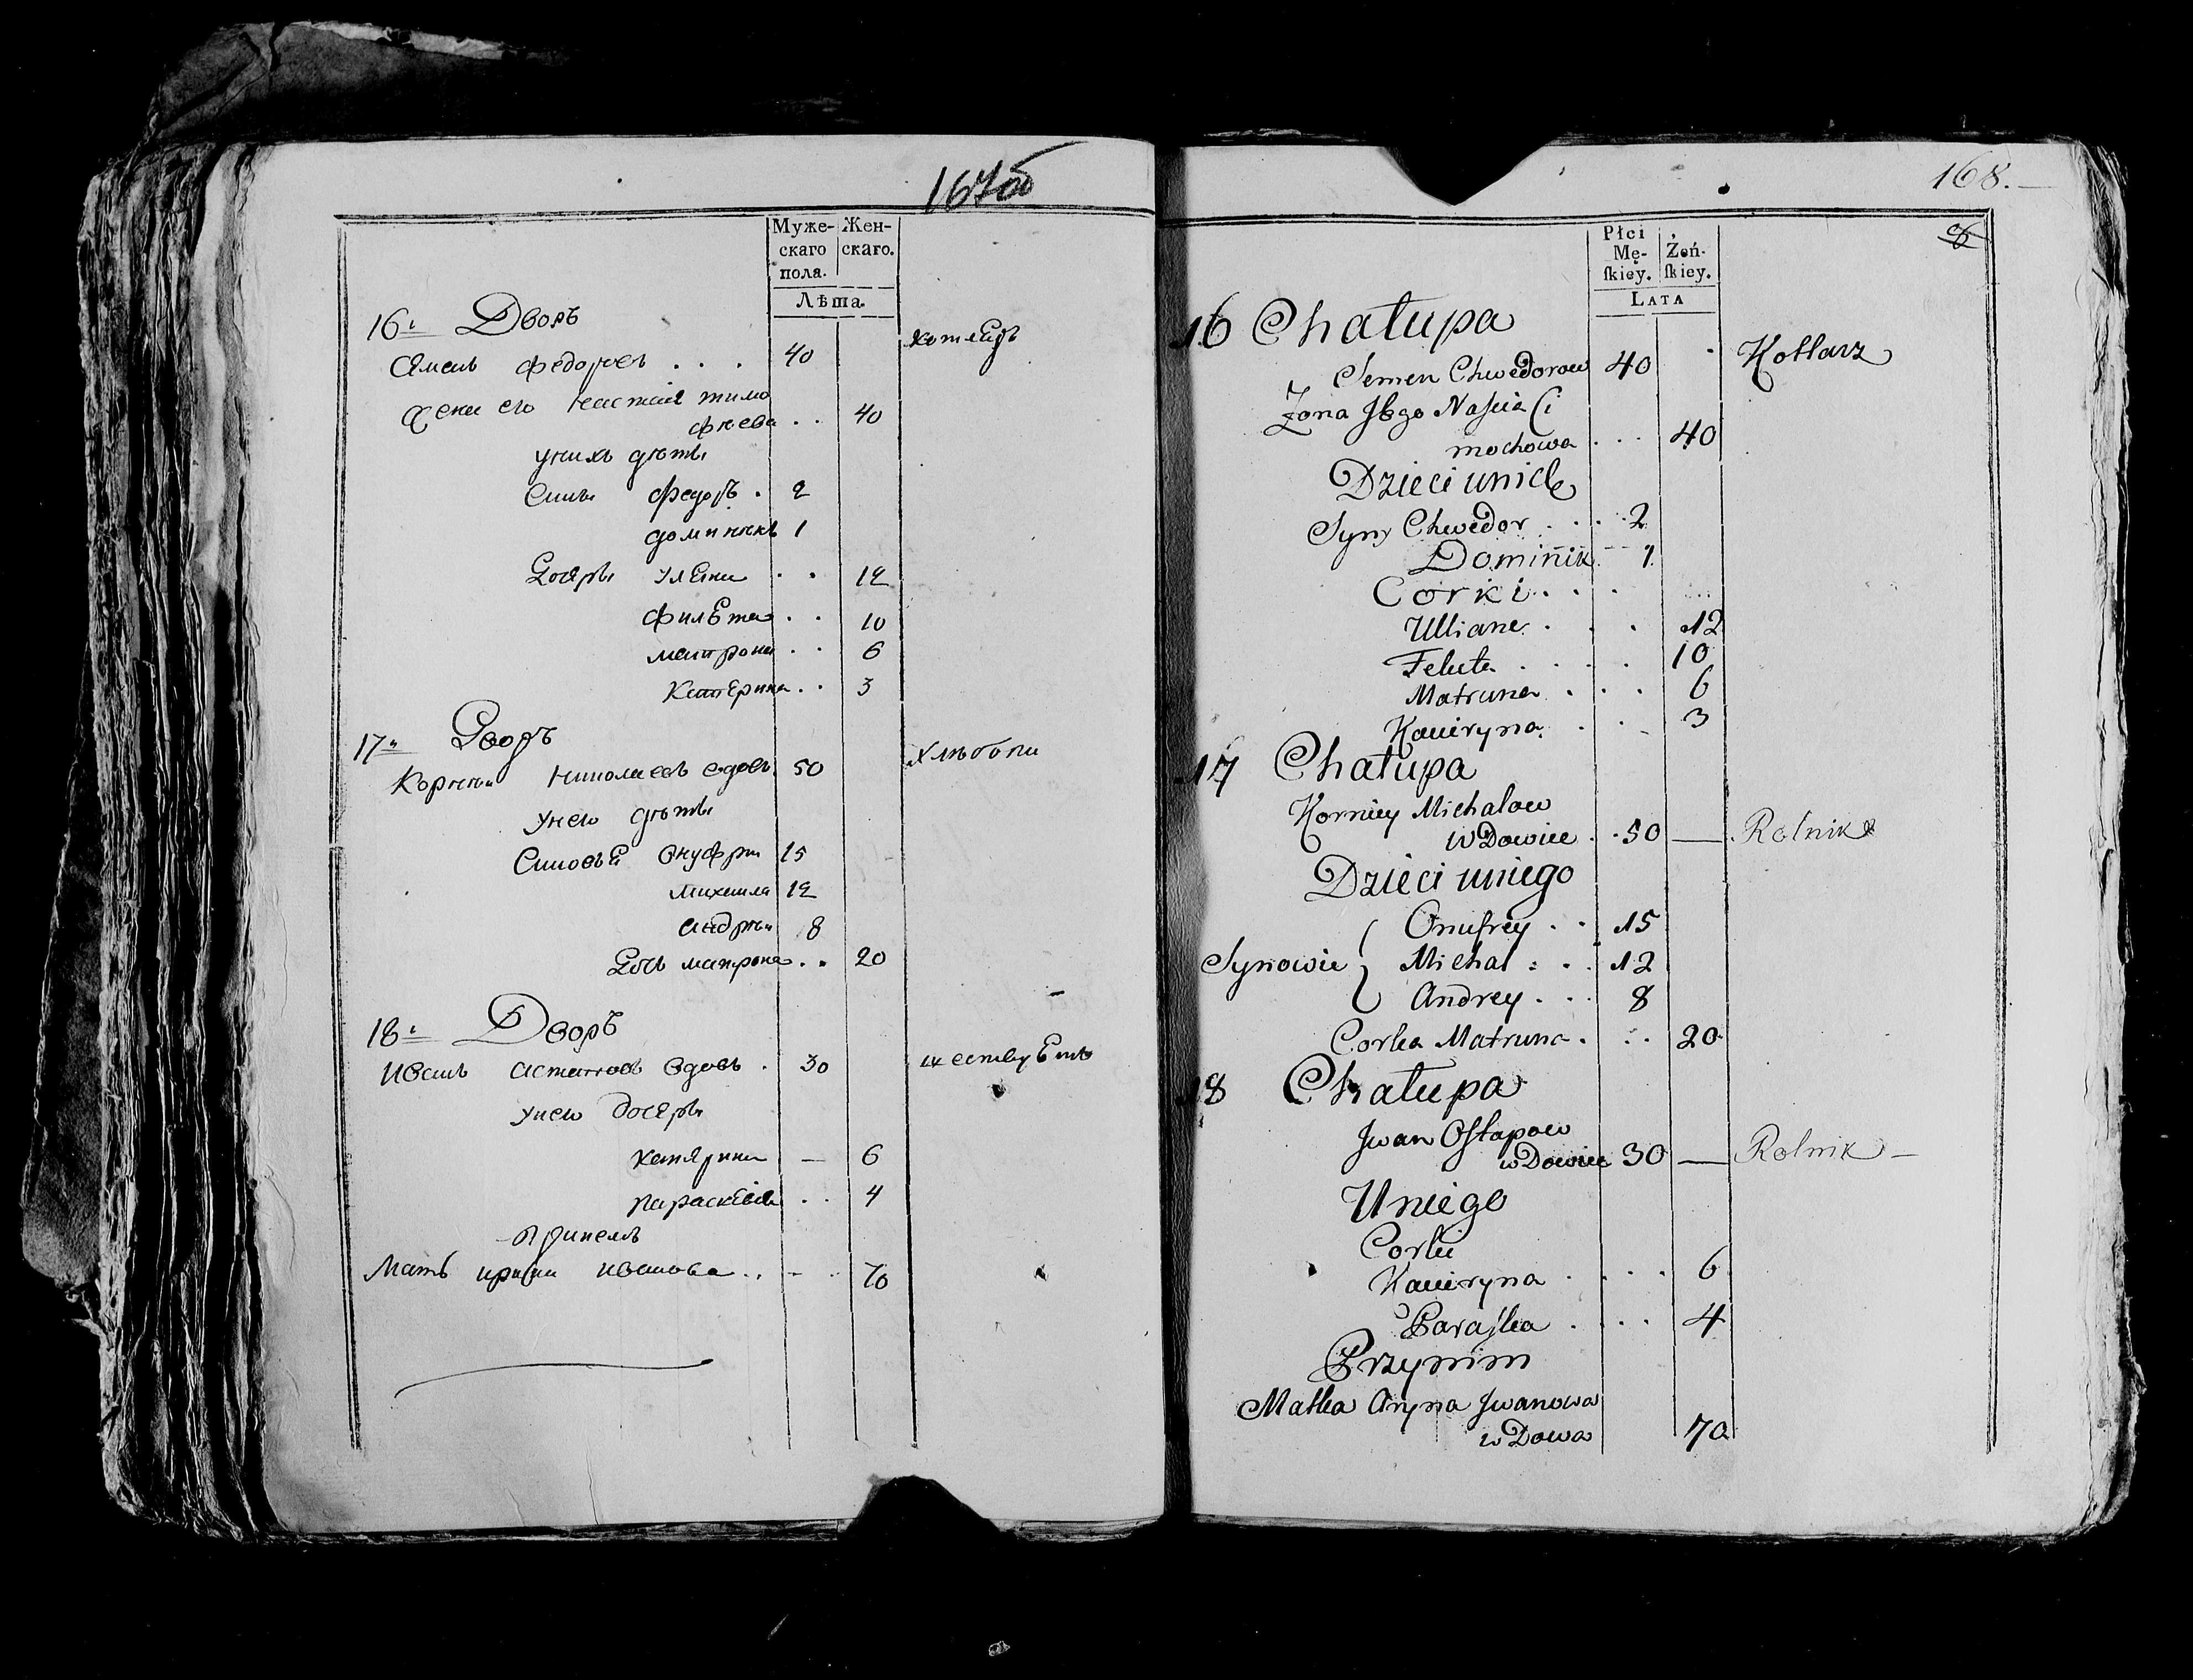 167об
Муже-
скаго
пола.
Жен-
скаго.
Лѣта.
16й Дворъ
Сямень Федоровъ . . . 40
Жена его Настася Тимо
фѣева . . 40
у нихъ дѣти
Сины Федоръ . 2
Доминикъ 1
Дочяри Уляна . . 12
Филета . . 10
Матрона . . 6
Катерина . . 3
17й Дворъ
Корнѣй Николаевъ вдовъ 50
у него дѣти
Синовьѣ Онуфри 15
Михаила 12
Андрѣй 8
Дочь Матрона . . 20
хлѣбопа
18й Дворъ
Иванъ Астаповъ вдовъ . 30
у него дочяри
Катярина — 6
Параскевія . . 4
при немъ
Мать Ирина Иванова . . - . 70
168.
Płci
Mę-
ſkiey.
Żeń-
ſkiey.
Lata
16 Chałupa
Semen Chwedorow 40 Kotlarz
Zona Jego Naſcia Ci
mochowa . . . 40
Dzieci unich
Syny Chwedor . . . . 2
Dominik 1
Corki . . .
Ulliana . . . 12
Feluta . . . . 10
Matruna . . . 6
Kaciryna . . 3
17 Chałupa
Korniey Michalow
wDowiec . . 50 — Rolnik
Dzieci uniego
Onufrey . . 15
Synowie Michał : . . 12
Andrey . . . 8
Corka Matruna . . . . 20
18 Chałupa
Jwan Oſtapow
wDowiec 30 — Rolnik —
Uniego
Corki
Kaciryna . . . . 6
Paraſka . . . . 4
Przynim
Matka Aryna Jwanowa
wDowa 70